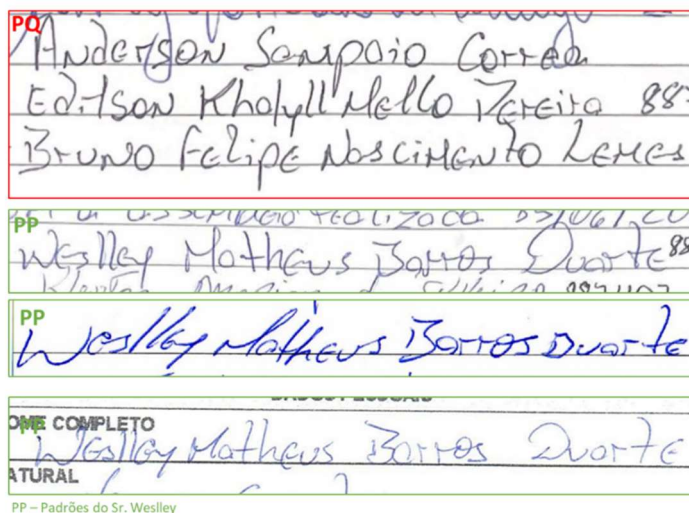 PQ
Anderson Sampaio Correa
Edilson Khalyll Mello Pereira 88
Bruno Felipe Nascimento Lemes
PP
Weslley Matheus Barros Duarte 88
PP
Weslley Matheus Barros Duarte
OME COMPLETO
PP
Weslley Matheus Barros Duarte
ATURAL
PP – Padrões do Sr. Weslley